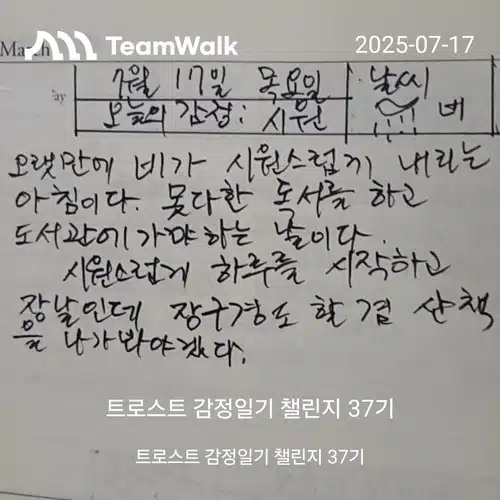 March
TeamWalk
2025-07-17
ay
7월 17일 목요일 날씨
오늘의 감정: 시원 비
오랫만에 비가 시원스럽게 내리는
아침이다. 못다한 독서를 하고
도서관에 가야하는 날이다.
시원스럽게 하루를 시작하고
장날인데 장구경도 할 겸 산책
을 나가봐야겠다.
트로스트 감정일기 챌린지 37기
트로스트 감정일기 챌린지 37기